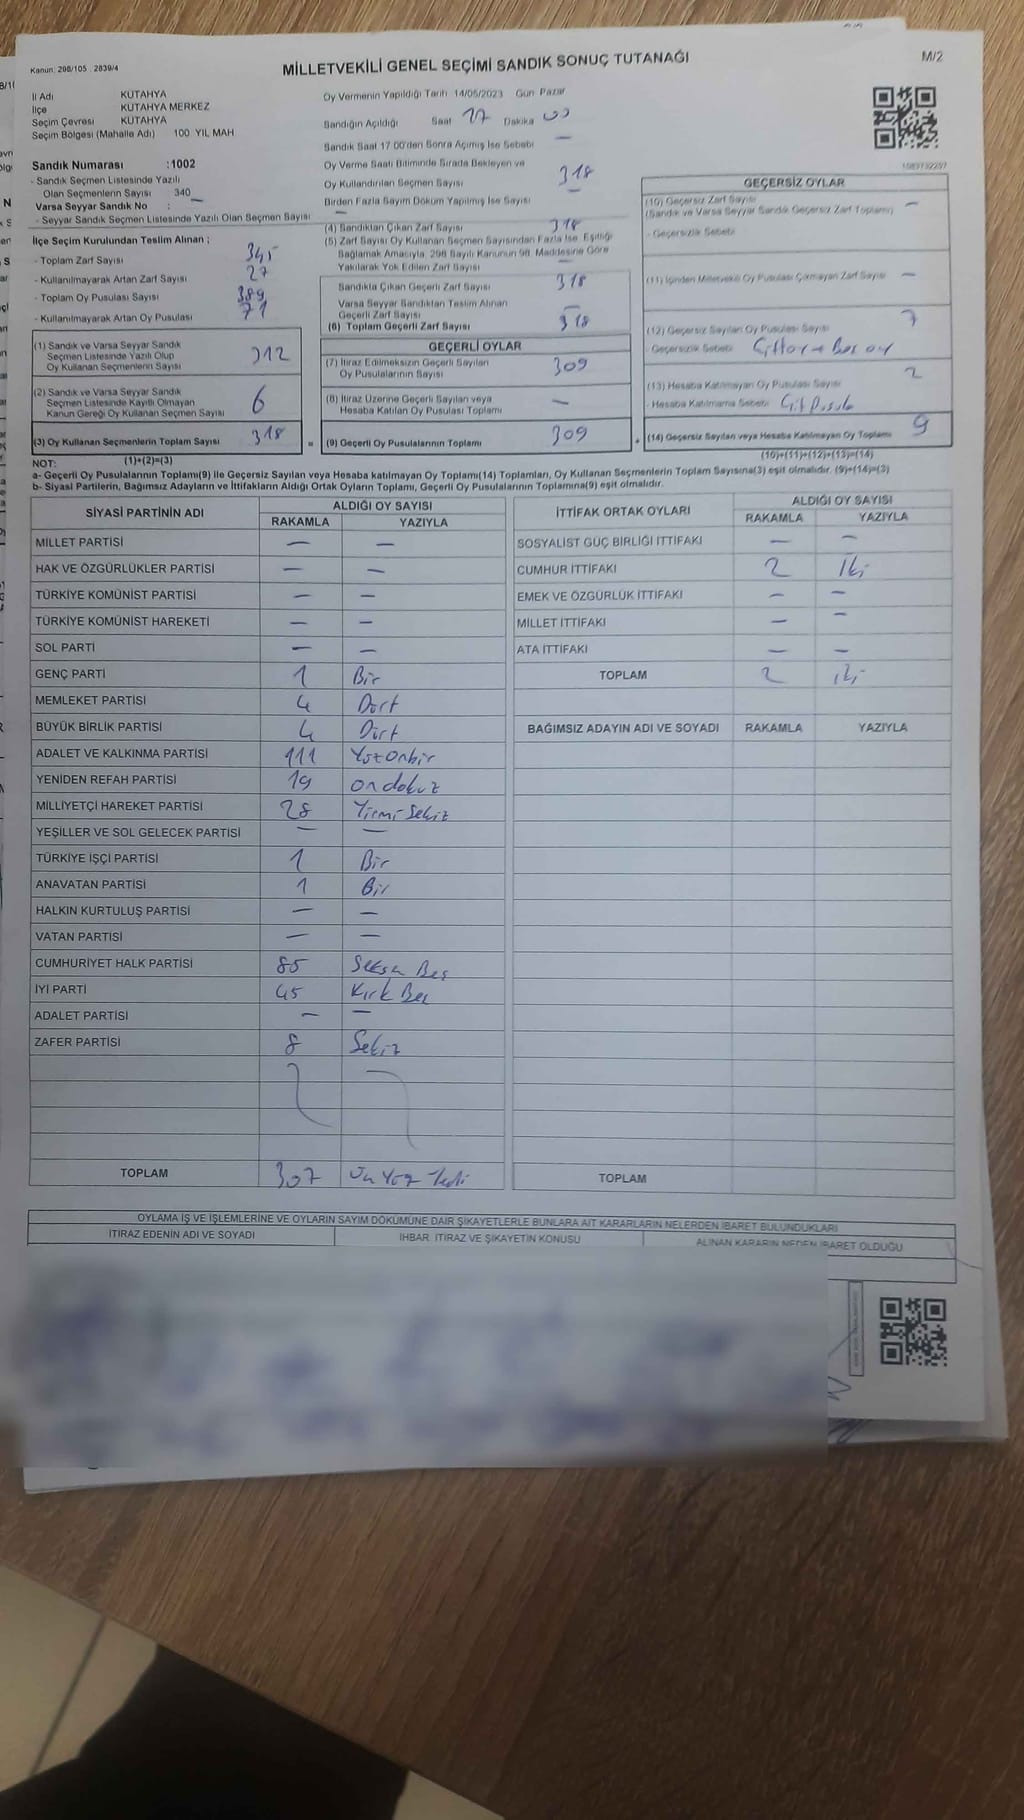 M/2
Kanun: 298/105 . 2839/4
MİLLETVEKİLİ GENEL SEÇİMİ SANDIK SONUÇ TUTANAĞI
İl Adı KÜTAHYA
İlçe KÜTAHYA MERKEZ
Seçim Çevresi KÜTAHYA
Seçim Bölgesi (Mahalle Adı) 100. YIL MAH.
Sandık Numarası :1002
- Sandık Seçmen Listesinde Yazılı
Olan Seçmenlerin Sayısı 340
Varsa Seyyar Sandık No : —
- Seyyar Sandık Seçmen Listesinde Yazılı Olan Seçmen Sayısı —
İlçe Seçim Kurulundan Teslim Alınan ;
- Toplam Zarf Sayısı 345
- Kullanılmayarak Artan Zarf Sayısı 27
- Toplam Oy Pusulası Sayısı 389
- Kullanılmayarak Artan Oy Pusulası 71
(1) Sandık ve Varsa Seyyar Sandık
Seçmen Listesinde Yazılı Olup
Oy Kullanan Seçmenlerin Sayısı 312
(2) Sandık ve Varsa Seyyar Sandık
Seçmen Listesinde Kayıtlı Olmayan
Kanun Gereği Oy Kullanan Seçmen Sayısı 6
(3) Oy Kullanan Seçmenlerin Toplam Sayısı 318
(1)+(2)=(3)
Oy Vermenin Yapıldığı Tarih 14/05/2023 Gün Pazar
Sandığın Açıldığı Saat 17 Dakika 00
Sandık Saat 17:00'den Sonra Açılmış İse Sebebi —
Oy Verme Saati Bitiminde Sırada Bekleyen ve
Oy Kullandırılan Seçmen Sayısı 318
Birden Fazla Sayım Döküm Yapılmış İse Sayısı —
(4) Sandıktan Çıkan Zarf Sayısı 318
(5) Zarf Sayısı Oy Kullanan Seçmen Sayısından Fazla İse, Eşitliği
Sağlamak Amacıyla, 298 Sayılı Kanunun 98. Maddesine Göre
Yakılarak Yok Edilen Zarf Sayısı —
Sandıkta Çıkan Geçerli Zarf Sayısı 318
Varsa Seyyar Sandıktan Teslim Alınan
Geçerli Zarf Sayısı —
(6) Toplam Geçerli Zarf Sayısı 318
GEÇERLİ OYLAR
(7) İtiraz Edilmeksizin Geçerli Sayılan
Oy Pusulalarının Sayısı 309
(8) İtiraz Üzerine Geçerli Sayılan veya
Hesaba Katılan Oy Pusulası Toplamı —
= (9) Geçerli Oy Pusulalarının Toplamı 309
GEÇERSİZ OYLAR
(10) Geçersiz Zarf Sayısı —
(Sandık ve Varsa Seyyar Sandık Geçersiz Zarf Toplamı)
- Geçersizlik Sebebi
(11) İçinden Milletvekili Oy Pusulası Çıkmayan Zarf Sayısı —
(12) Geçersiz Sayılan Oy Pusulası Sayısı 7
- Geçersizlik Sebebi
(13) Hesaba Katılmayan Oy Pusulası Sayısı 2
- Hesaba Katılmama Sebebi
+ (14) Geçersiz Sayılan veya Hesaba Katılmayan Oy Toplamı 9
(10)+(11)+(12)+(13)=(14)
NOT:
a- Geçerli Oy Pusulalarının Toplamı(9) ile Geçersiz Sayılan veya Hesaba katılmayan Oy Toplamı(14) Toplamları, Oy Kullanan Seçmenlerin Toplam Sayısına(3) eşit olmalıdır. (9)+(14)=(3)
b- Siyasi Partilerin, Bağımsız Adayların ve İttifakların Aldığı Ortak Oyların Toplamı, Geçerli Oy Pusulalarının Toplamına(9) eşit olmalıdır.
SİYASİ PARTİNİN ADI ALDIĞI OY SAYISI
RAKAMLA YAZIYLA
MİLLET PARTİSİ — —
HAK VE ÖZGÜRLÜKLER PARTİSİ — —
TÜRKİYE KOMÜNİST PARTİSİ — —
TÜRKİYE KOMÜNİST HAREKETİ — —
SOL PARTİ — —
GENÇ PARTİ 1 Bir
MEMLEKET PARTİSİ 4 Dört
BÜYÜK BİRLİK PARTİSİ 4 Dört
ADALET VE KALKINMA PARTİSİ 111 Yüz Onbir
YENİDEN REFAH PARTİSİ 19 ondokuz
MİLLİYETÇİ HAREKET PARTİSİ 28 Yirmi Sekiz
YEŞİLLER VE SOL GELECEK PARTİSİ — —
TÜRKİYE İŞÇİ PARTİSİ 1 Bir
ANAVATAN PARTİSİ 1 Bir
HALKIN KURTULUŞ PARTİSİ — —
VATAN PARTİSİ — —
CUMHURİYET HALK PARTİSİ 85 Seksen Beş
İYİ PARTİ 45 Kırk Beş
ADALET PARTİSİ — —
ZAFER PARTİSİ 8 Sekiz
TOPLAM 307 Üç Yüz Yedi
İTTİFAK ORTAK OYLARI ALDIĞI OY SAYISI
RAKAMLA YAZIYLA
SOSYALİST GÜÇ BİRLİĞİ İTTİFAKI — —
CUMHUR İTTİFAKI 2 İki
EMEK VE ÖZGÜRLÜK İTTİFAKI — —
MİLLET İTTİFAKI — —
ATA İTTİFAKI — —
TOPLAM 2 iki
BAĞIMSIZ ADAYIN ADI VE SOYADI RAKAMLA YAZIYLA
TOPLAM
OYLAMA İŞ VE İŞLEMLERİNE VE OYLARIN SAYIM DÖKÜMÜNE DAİR ŞİKAYETLERLE BUNLARA AİT KARARLARIN NELERDEN İBARET BULUNDUKLARI
İTİRAZ EDENİN ADI VE SOYADI İHBAR, İTİRAZ VE ŞİKAYETİN KONUSU ALINAN KARARIN NEDEN İBARET OLDUĞU